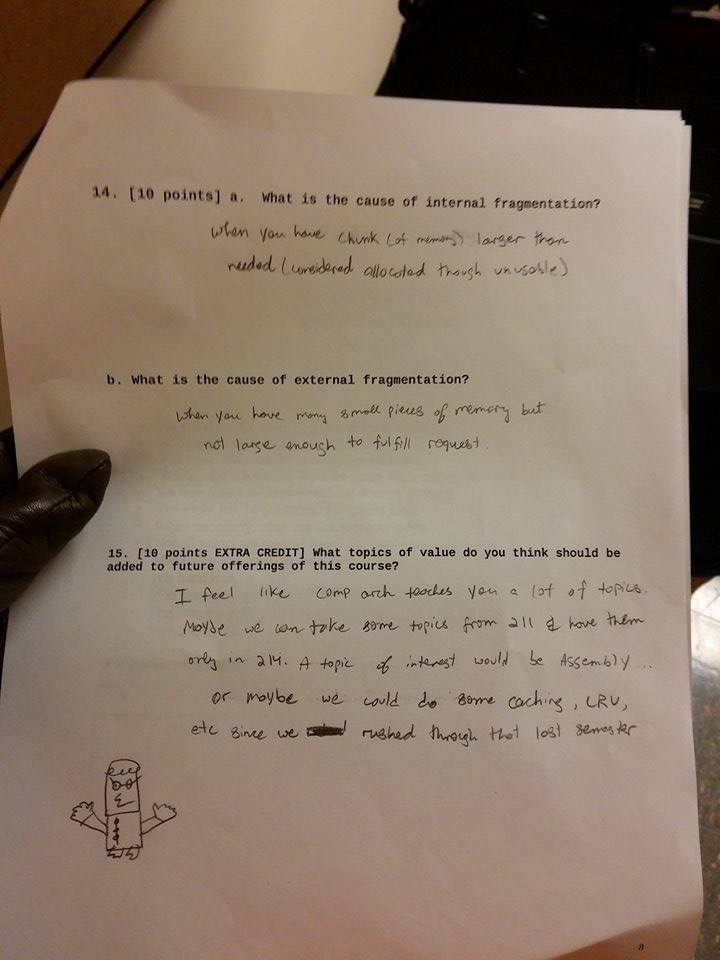 14. [10 points] a. What is the cause of internal fragmentation?
When you have chunk (of memory) larger than
needed (considered allocated though unusable)
b. What is the cause of external fragmentation?
When you have many small pieces of memory but
not large enough to fulfill request.
15. [10 points EXTRA CREDIT] What topics of value do you think should be
added to future offerings of this course?
I feel like comp arch teaches you a lot of topics.
Maybe we can take some topics from 211 & have them
only in 214. A topic of interest would be Assembly ..
or maybe we could do some caching, LRU,
etc since we rushed through that last semester
8